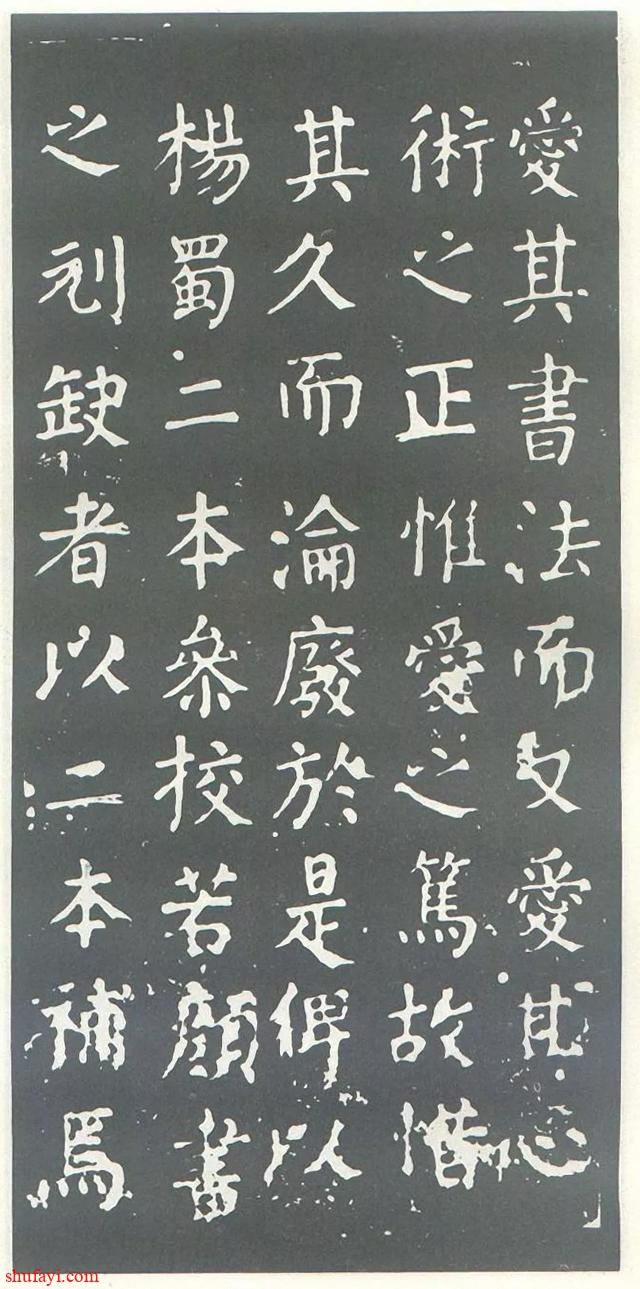 愛其書法而又愛其心
術之正惟愛之篤故惜
其久而淪廢於是俾以
楊蜀二本叅挍若顔書
之刓缺者以二本補焉
shufayi.com